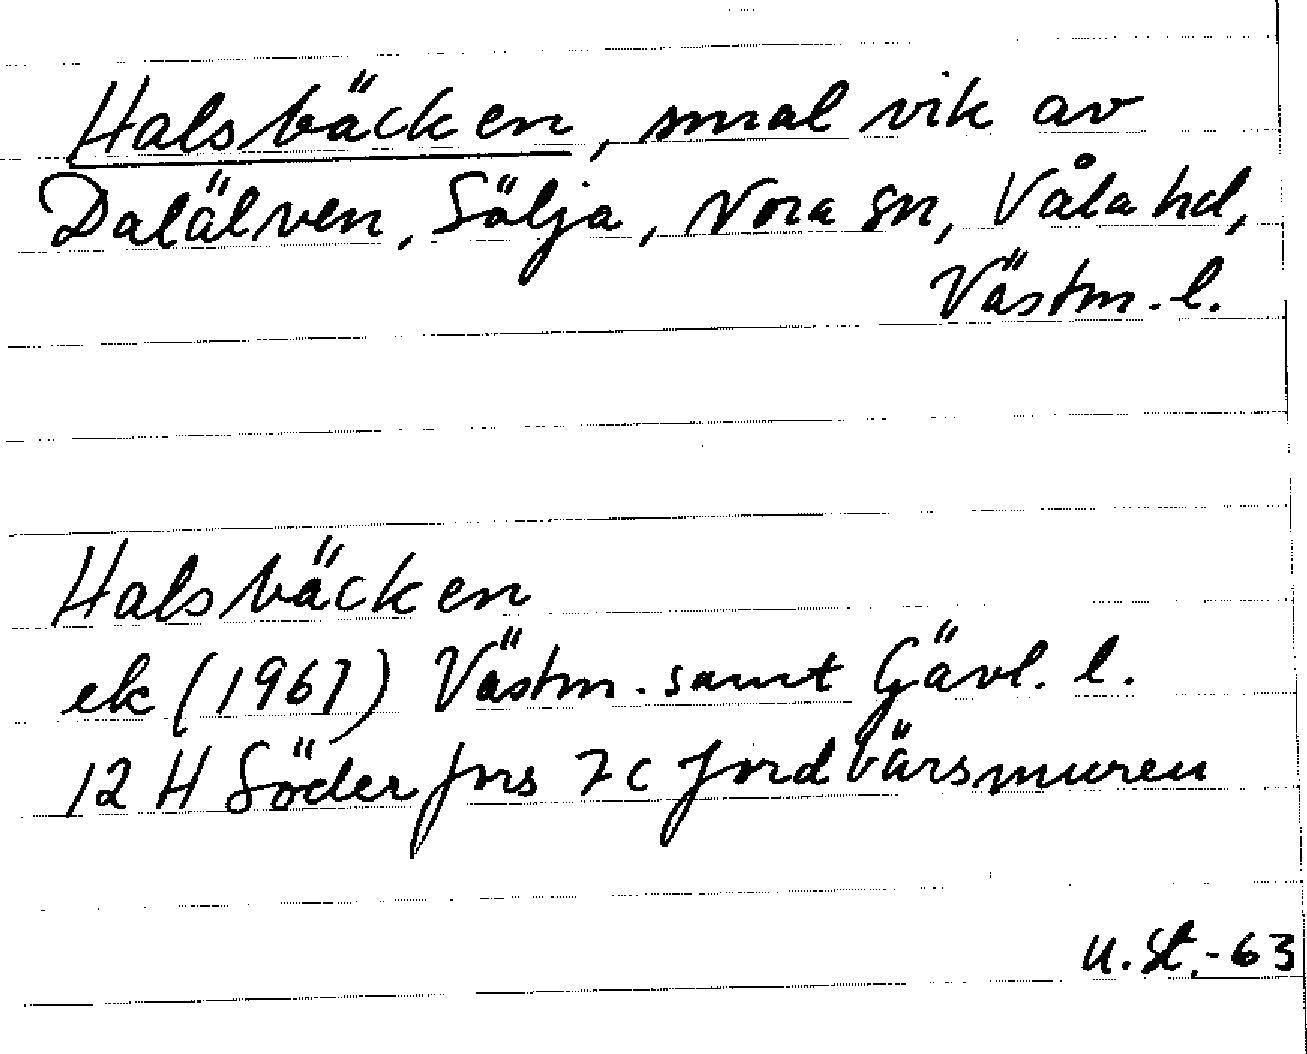 Halsbäcken, smal vik av
Dalälven, Sälja, Nora sn, Våla hd,
Västm. l.
Halsbäcken
ek (1961) Västm. samt Gävl. l.
12 H Söderfors 7c Jordbärsmuren
U. St. -63